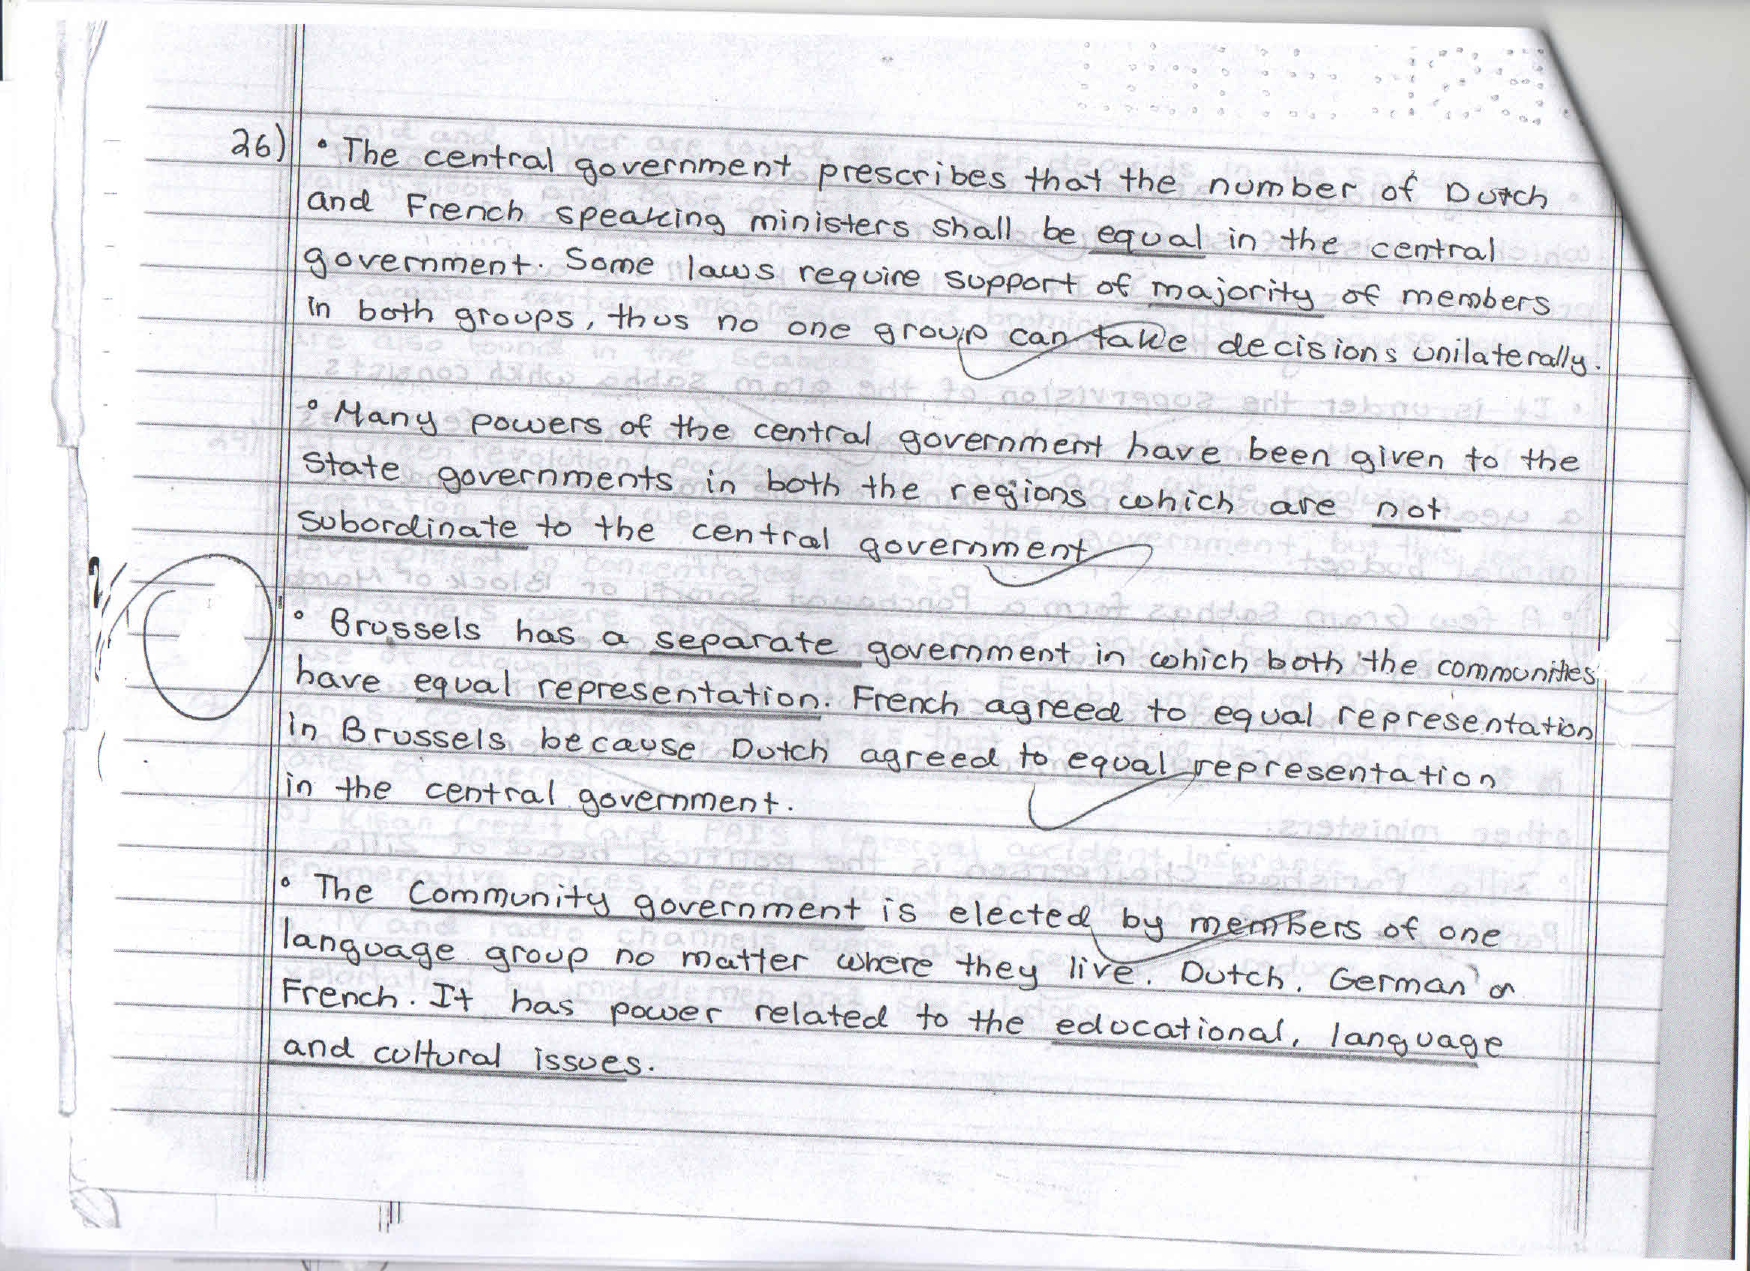 26) • The central government prescribes that the number of Dutch
and French speaking ministers shall be equal in the central
government. Some laws require support of majority of members
in both groups, thus no one group can take decisions unilaterally.
• Many powers of the central government have been given to the
State governments in both the regions which are not
subordinate to the central government
• Brussels has a separate government in which both the communities
have equal representation. French agreed to equal representation
in Brussels because Dutch agreed to equal representation
in the central government.
• The Community government is elected by members of one
language group no matter where they live. Dutch, German or
French. It has power related to the educational, language
and cultural issues.